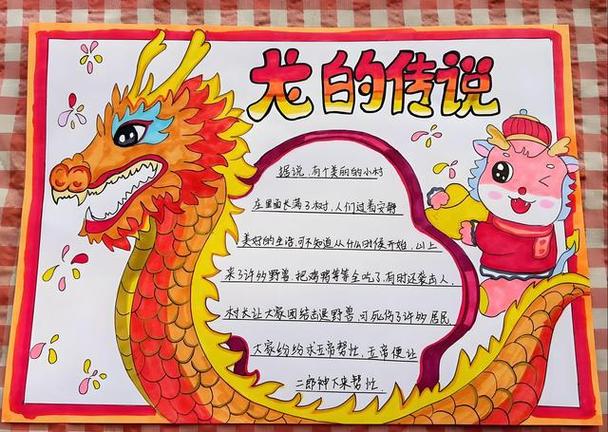 龙的传说
据说,有个美丽的小村
庄里面长满了树,人们过着安静
美好的生活,可不知道从什么时候开始,山上
来了许多野兽,把鸡鸭等等全吃了,有时还袭击人.
村长让大家团结击退野兽,可死伤了许多居民
大家纷纷求玉帝帮忙,玉帝便让
二郎神下来帮忙.